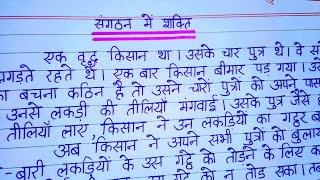 संगठन में शक्ति
एक वृद्ध किसान था। उसके चार पुत्र थे। वे
झगड़ते रहते थे। एक बार किसान बीमार पड़ गया।
का बचना कठिन है तो उसने चारों पुत्रों को अपने
उनसे लकड़ी की तीलियाँ मंगवाई। उसके पुत्र जैसे
तीलियाँ लाए, किसान ने उन लकड़ियों का गट्ठर
अब किसान ने अपने सभी पुत्रों को
- बारी लकड़ियों के उस गट्ठे को तोड़ने के लिए
को न तोड़ सका।